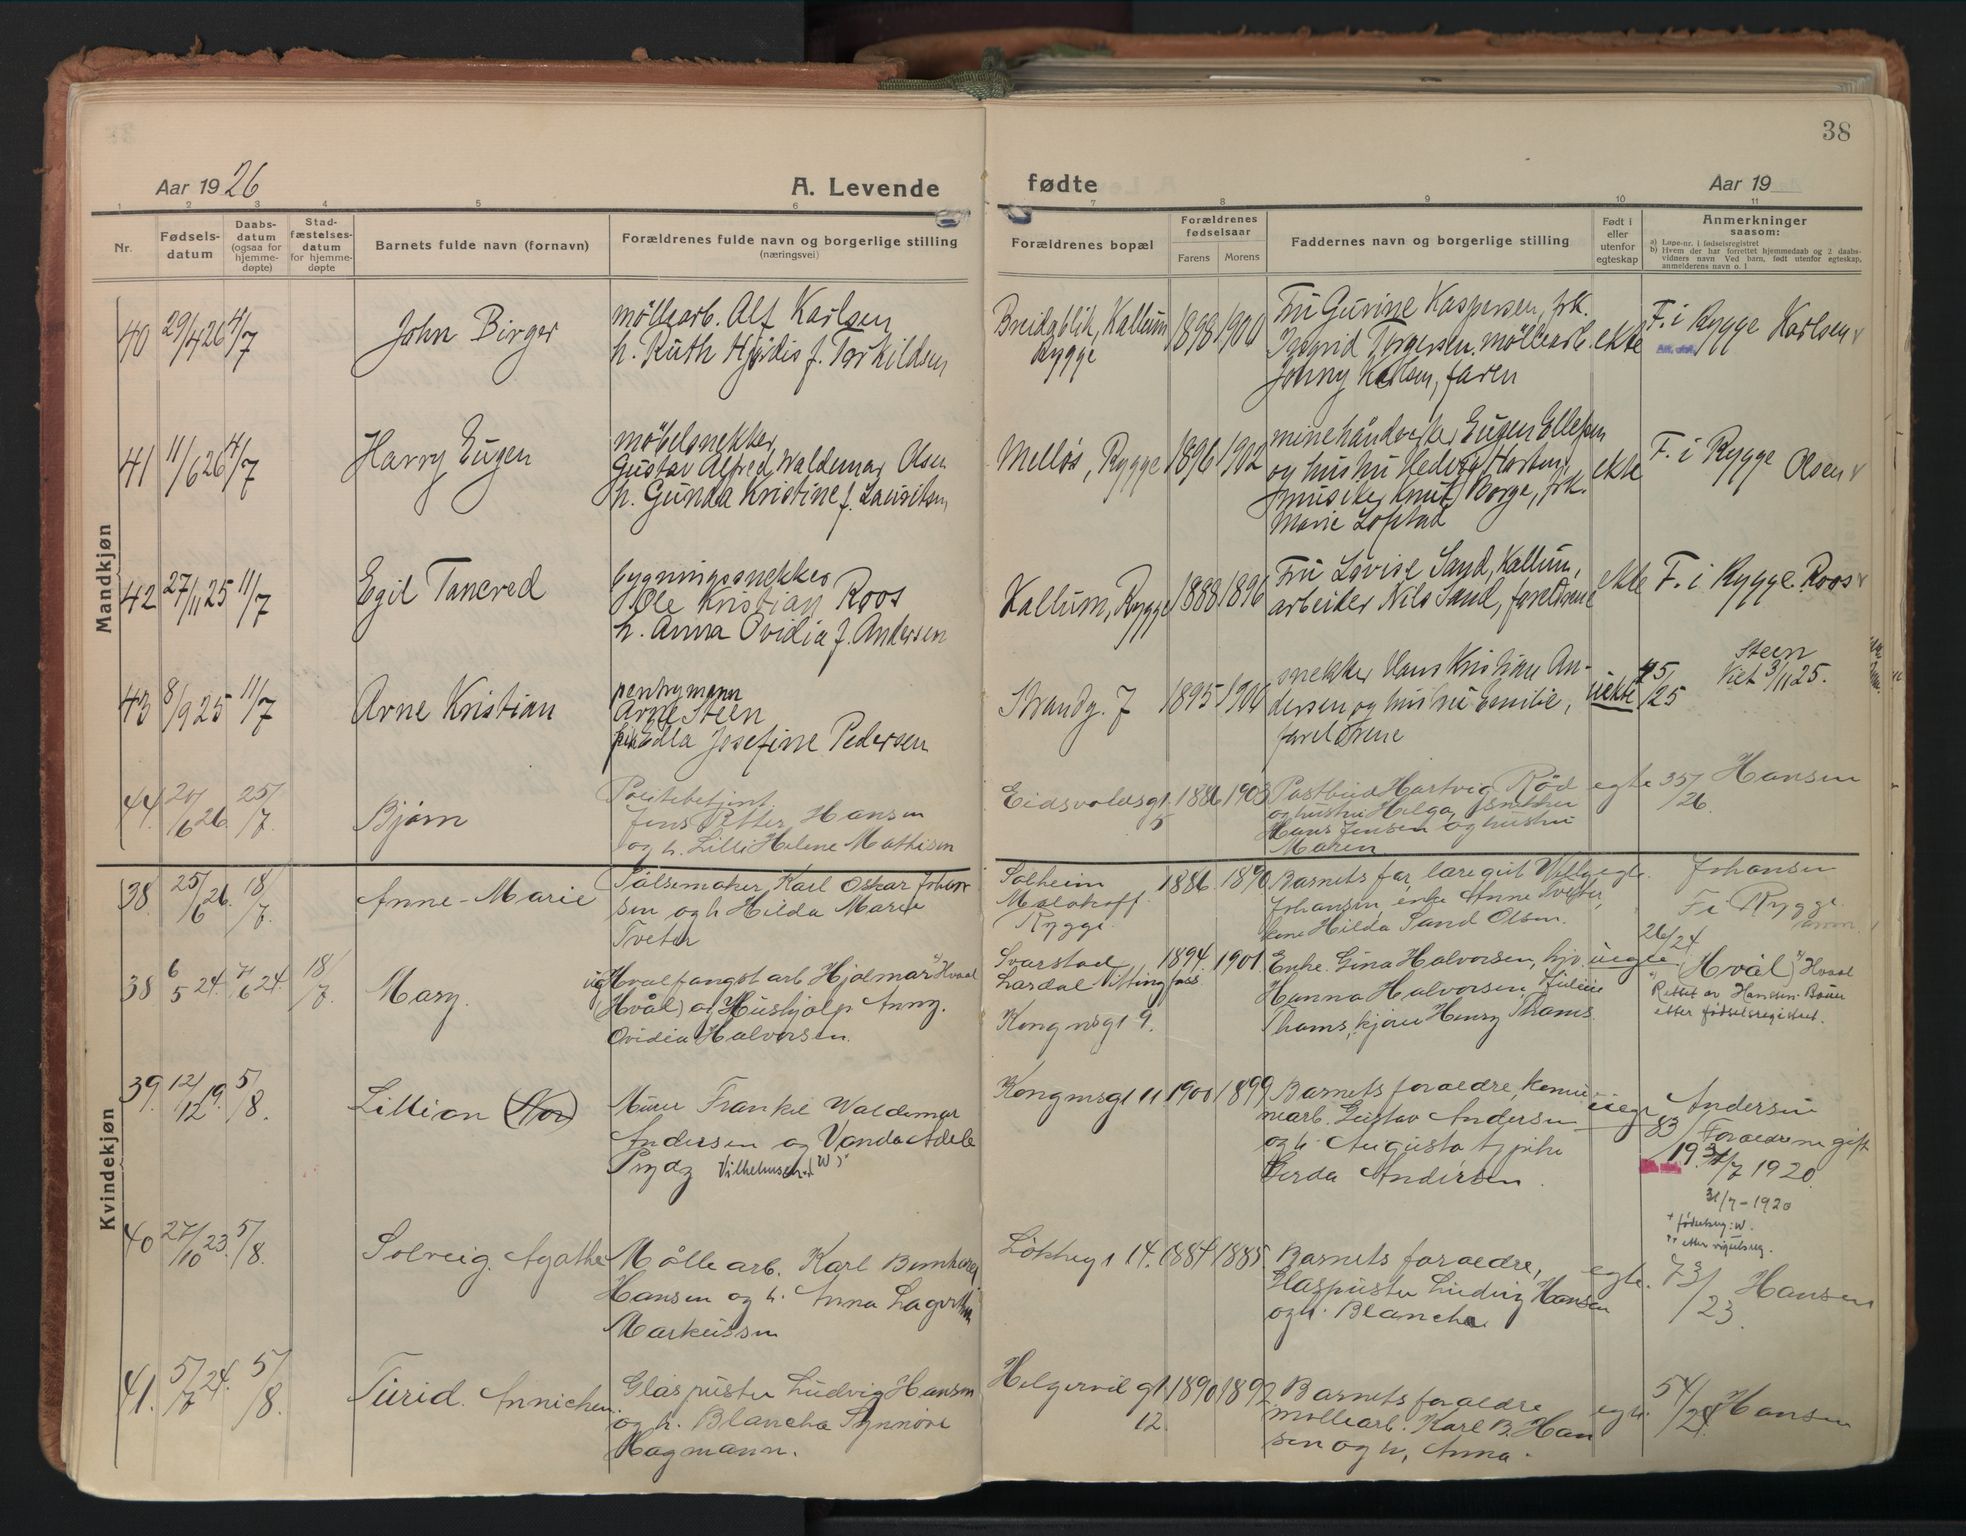 38
Aar 1926
A. Levende
fødte
Aar 19
1 2 3 4 5 6 7 8 9 10 11
Nr.
Fødsels-
datum
Daabs-
datum
(ogsaa for
hjemme-
døpte)
Stad-
fæstelses-
datum
for hjemme-
døpte
Barnets fulde navn (fornavn)
Forældrenes fulde navn og borgerlige stilling
(næringsvei)
Forældrenes bopæl
Forældrenes
fødselsaar
Farens Morens
Faddernes navn og borgerlige stilling
Født i
eller
utenfor
egteskap
Anmerkninger
saasom:
a) Løpe-nr. i fødselsregistret
b) Hvem der har forrettet hjemmedaab og 2 daabs-
vidners navn Ved barn, født utenfor egteskap,
anmelderens navn o. l
Mandkjøn
40 29/4 26 4/7
John Birger
møllearb. Alf Karlsen
h. Ruth Hjørdis f. Torkildsen
Breidablik, Kallum
Rygge
1898 1900
Fru Gurine Kaspersen, frk.
Ingrid Torgersen, møllearb.
Johnny Karlsen, faren
ekte
F. i Rygge Karlsen
41 11/6 26 4/7
Harry Eugen
møbelsnekker
Gustav Alfred Waldemar Olsen
h. Gunda Kristine f. Lauritsen
Melløs, Rygge
1896 1902
minehåndverker Eugen Ellefsen
og hustru Hedvig, Horten,
musiker Knut Borge, frk.
Marie Lofstad
ekte
F. i Rygge Olsen
42 27/11 25 11/7
Egil Tancred
bygningssnekker
Ole Kristian Roos
h. Anna Ovidia f. Andersen
Kallum, Rygge
1888 1896
Fru Lovise Sand, Kallum,
arbeider Nils Sand, foreldrene
ekte
F. i Rygge Roos
43 8/9 25 11/7
Arne Kristian
pentrymann
Arne Steen
pike Edla Josefine Pedersen
Strandg. 7
1895 1906
snekker Hans Kristian An-
dersen og hustru Emilie,
foreldrene
uekte
45/25
Steen
Viet 3/11 25.
44 20/6 26. 25/7.
Bjørn
Politibetjent
Jens Petter Hansen
og h. Lilli Helene Mathisen
Eidsvoldsgt.
5
1886 1903
Postbud Hartvig Rød
og hustru Helga, snekker
Hans Jensen og hustru
Maren
egte
35/26
Hansen
Kvindekjøn
38 25/6 26. 18/7.
Anne-Marie
Pølsemaker Karl Oskar Johan
sen og h Hilda Marie
Tveter
Solheim
Malakoff
Rygge.
1886. 1890
Barnets far, læregut Willy
Johansen, enke Anne Tveter,
Hilda Sand Olsen.
egte.
Johansen
F i Rygge.
38 6/5 24. 7/6 24. 18/7.
Mary.
Hvalfangstarb Hjalmar Hvaal
(Hvål) og Hushjelp Anny.
Ovidia Halvorsen.
Svarstad
Lardal Vittingfoss.
Kongensgt 9.
1894. 1901.
Enke. Gina Halvorsen, hjv.
Hanna Halvorsen, Juline
Thams, kjører Henry Thams.
uegte
26/24
(Hvål) Hvaal
Rettet av Hanssen-Bauer
etter fødselsregistret.
39. 12/12 19. 5/8.
Lillian (Nor)
Murer Frankil Waldemar
Andersen og Vanda Adele
Prydz Vilhelmsen (W)
Kongensgt 11.
1900 1899
Barnets foreldre, kemi
nearb. Gustav Andersen
og h. Augusta og pike
Gerda Andersen.
uegt
83/19.
Andersen
Forældrene gift
31/7 1920.
31/7-1920
* fødselsreg: W.
** etter vigselsreg.
40 27/10 23. 5/8.
Solveig. Agathe
Mølle arb. Karl Bernhard
Hansen og h. Anna Lagertha
Markussen
Løkkegt 14.
1884 1885.
Barnets foreldre,
Glaspuster Ludvig Hansen
og h. Blancha
egte.
73/23.
Hansen
41. 5/7 24. 5/8.
Turid. Annichen.
Glaspuster Ludvig Hansen
og h. Blancha Synnøve
Hagmann.
Helgerød gt.
12.
1890 1892.
Barnets foreldre
møllearb. Karl B. Han
sen og h, Anna.
egte.
54/24.
Hansen